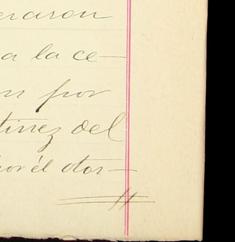 eraron
a la ce-
n por
tinez del
por él otor-